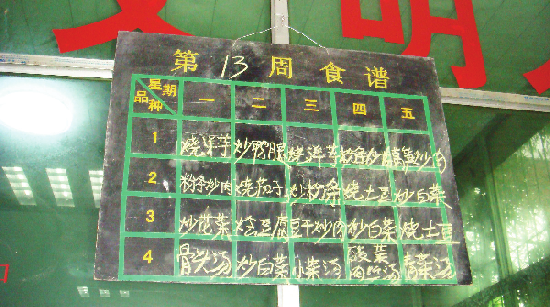 文 明
第 13 周 食 谱
星期 品种 一 二 三 四 五
1 烧洋芋 炒豆腐 烧洋芋
2 粉条炒肉 烧茄子 炒粉条 烧土豆 炒白菜
3 炒芹菜 烩豆腐 豆干炒肉 炒白菜 烧土豆
4 骨头汤 炒白菜 小菜汤 酸菜 肉丝汤 青菜汤